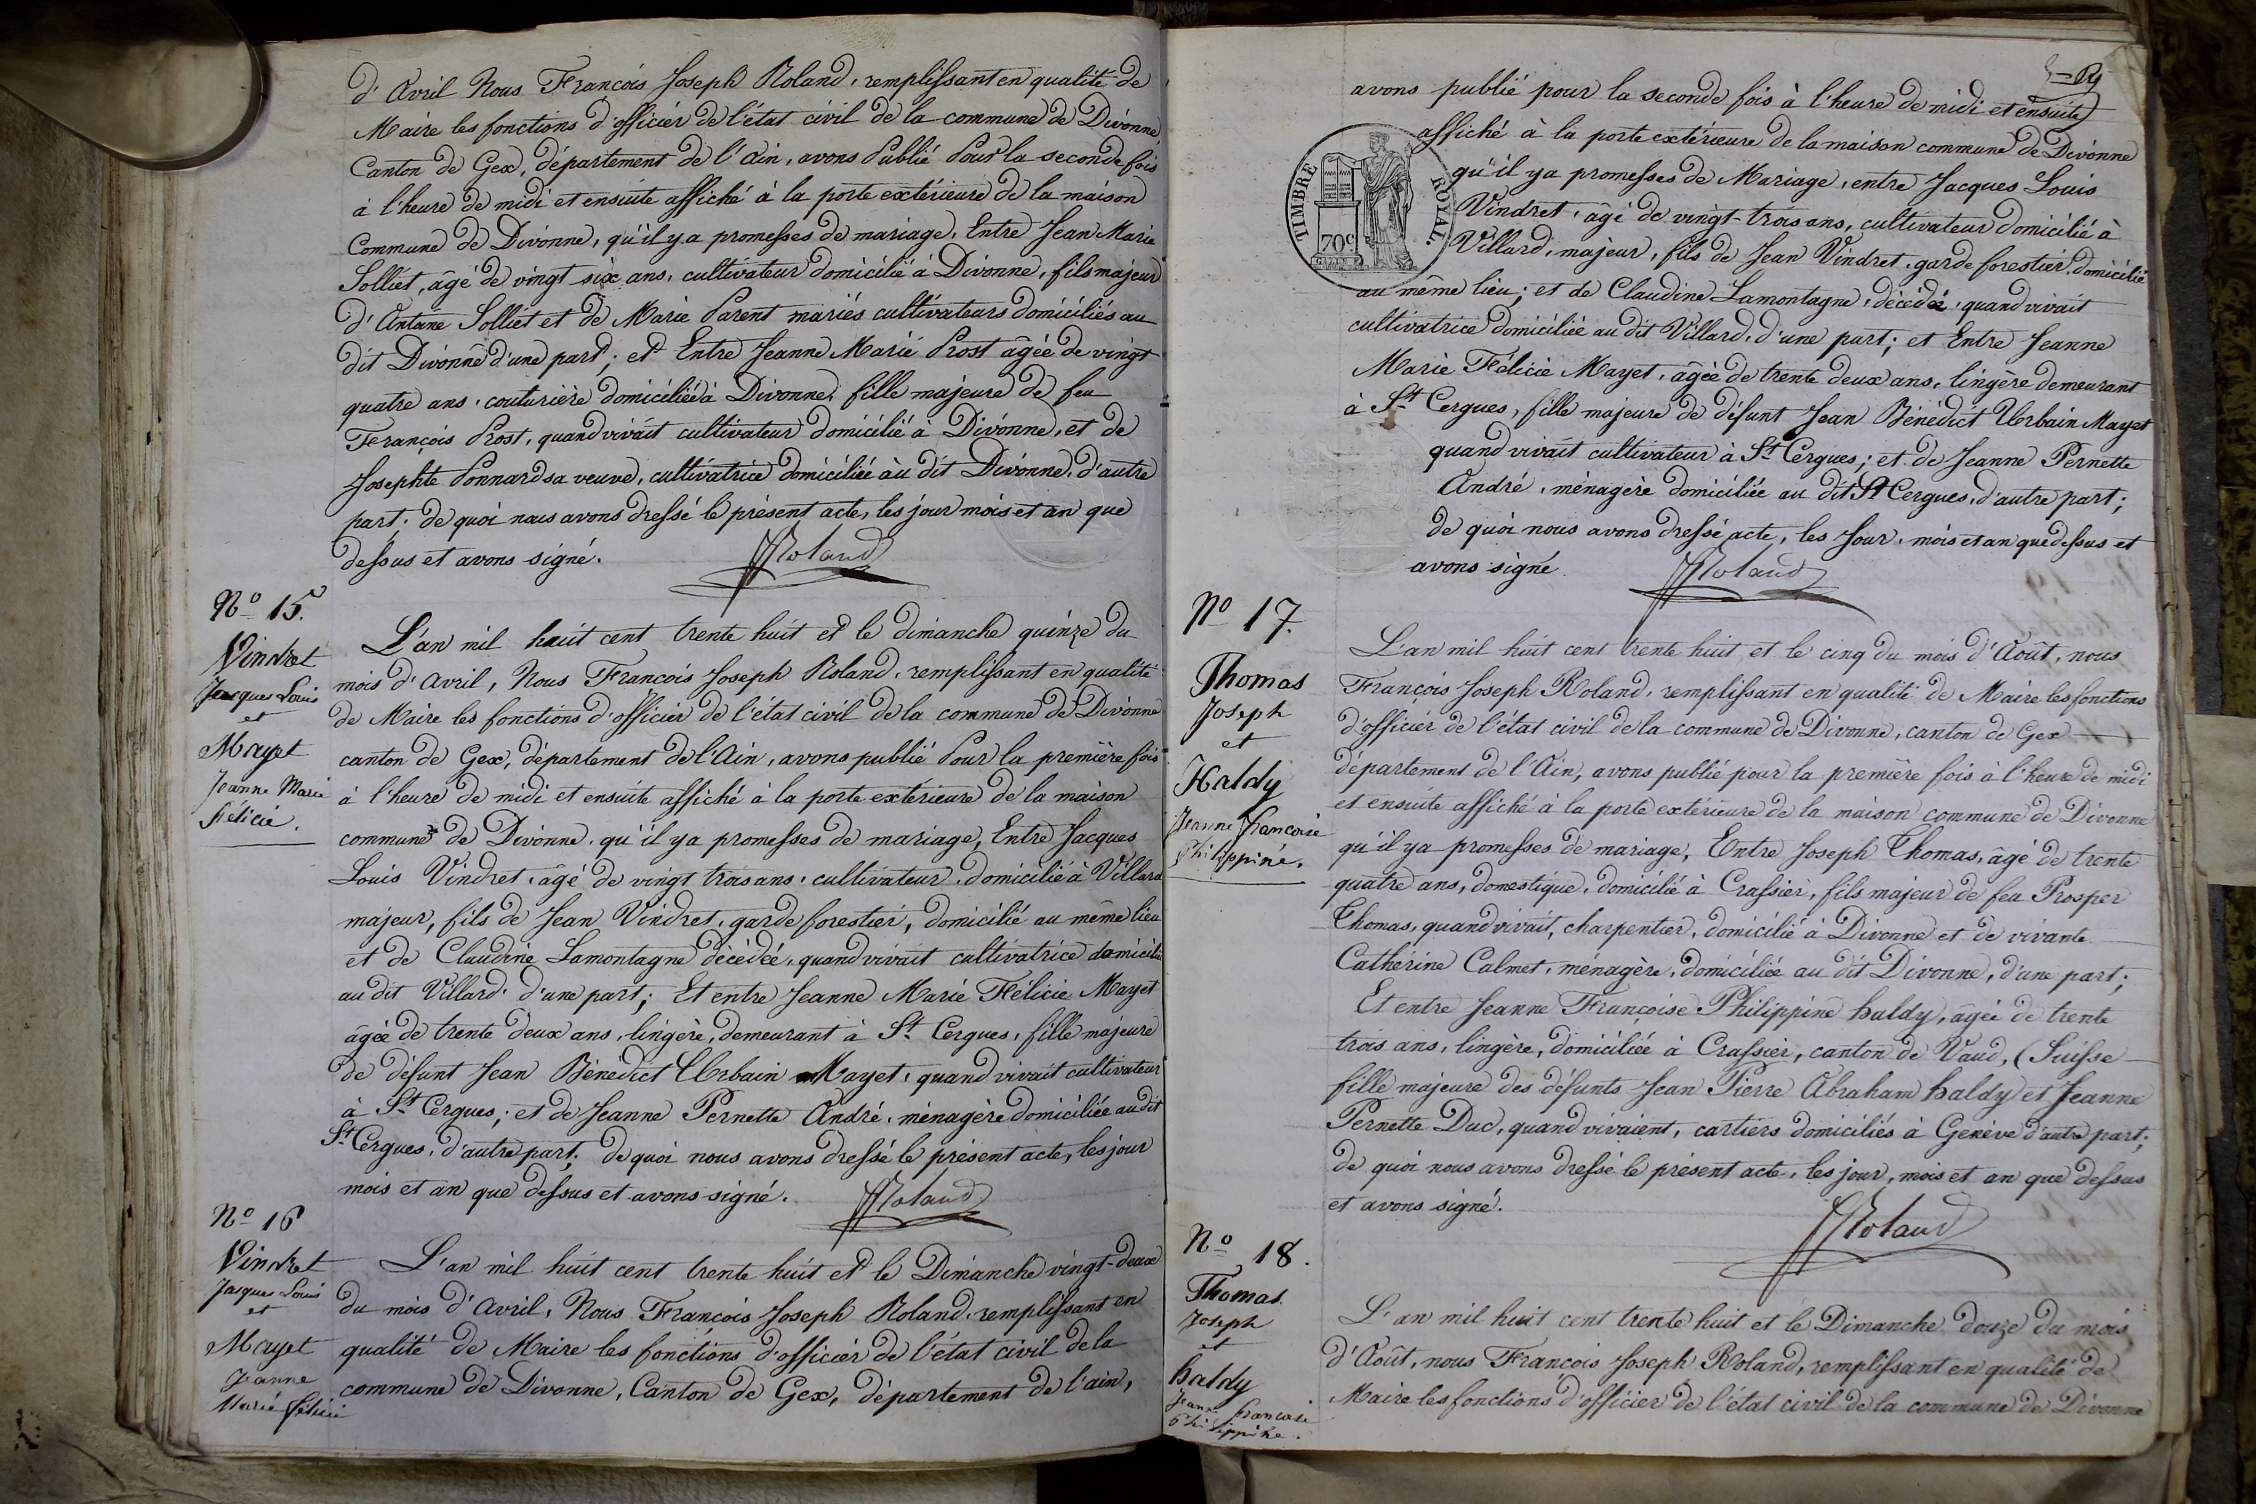 d'Avril Nous François Joseph Roland, remplissant en qualité de
Maire les fonctions d'officier de l'état civil de la commune de Divonne
Canton de Gex, département de l'Ain, avons Publié Pour la seconde fois
à l'heure de midi et ensuite affiché à la porte extérieure de la maison
Commune de Divonne, qu'il y a promesses de mariage, Entre Jean Marie
Solliet, âgé de vingt six ans, cultivateur domicilié à Divonne, fils majeur
d'Antoine Solliet et de Marie Parent mariés cultivateurs domiciliés au
dit Divonne d'une part; et Entre Jeanne Marie Prost âgée de vingt
quatre ans, couturière domiciliée à Divonne, fille majeure de feu
François Prost, quand vivait cultivateur domicilié à Divonne, et de
Josephte Ponnard sa veuve, cultivatrice domiciliée au dit Divonne, d'autre
part, de quoi nous avons dressé le présent acte, les jour mois et an que
dessus et avons signé.
FJRoland
N° 15.
Vindret
Jacques Louis
et
Mayet
Jeanne Marie
Félicie.
L'an mil huit cent trente huit et le dimanche quinze du
mois d'Avril, Nous François Joseph Roland, remplissant en qualité
de Maire les fonctions d'officier de l'état civil de la commune de Divonne
canton de Gex, département de l'Ain, avons publié Pour la première fois
à l'heure de midi et ensuite affiché à la porte extérieure de la maison
commune de Divonne, qu'il y a promesses de mariage, Entre Jacques
Louis Vindret, âgé de vingt trois ans, cultivateur, domicilié à Villard
majeur, fils de Jean Vindret, garde forestier, domicilié au même lieu
et de Claudine Lamontagne décédée, quand vivait cultivatrice domiciliée
au dit Villard, d'une part; Et entre Jeanne Marie Félicie Mayet
âgée de trente deux ans, lingère, demeurant à St Cergues, fille majeure
de défunt Jean Bénédict Urbain Mayet, quand vivait cultivateur
à St Cergues; et de Jeanne Pernette André, ménagère domiciliée au dit
St Cergues, d'autre part; de quoi nous avons dressé le présent acte, les jour
mois et an que dessus et avons signé.
FJRoland
N° 16
Vindret
Jacques Louis
et
Mayet
Jeanne
Marie Félicie
L'an mil huit cent trente huit et le Dimanche vingt-deux
du mois d'Avril, Nous François Joseph Roland, remplissant en
qualité de Maire les fonctions d'officier de l'état civil de la
commune de Divonne, Canton de Gex, département de l'ain,
avons publié pour la seconde fois à l'heure de midi et ensuite
affiché à la porte extérieure de la maison commune de Divonne
qu'il y a promesses de Mariage, entre Jacques Louis
Vindret, âgé de vingt-trois ans, cultivateur domicilié à
Villard, majeur, fils de Jean Vindret, garde forestier, domicilié
au même lieu; et de Claudine Lamontagne, décédée, quand vivait
cultivatrice domiciliée au dit Villard, d'une part; et Entre Jeanne
Marie Félicie Mayet, âgée de trente deux ans, lingère demeurant
à St Cergues, fille majeure de défunt Jean Bénédict Urbain Mayet
quand vivait cultivateur à St Cergues; et de Jeanne Pernette
André, ménagère domiciliée au dit St Cergues, d'autre part;
de quoi nous avons dressé acte, les Jour, mois et an que dessus et
avons signé.
FJRoland
TIMBRE ROYAL.
70c
N° 17.
Thomas
Joseph
et
Haldy
Jeanne françoise
Philippine.
L'an mil huit cent trente huit et le cinq du mois d'Août, nous
François Joseph Roland, remplissant en qualité de Maire les fonctions
d'officier de l'état civil de la commune de Divonne, canton de Gex
département de l'Ain, avons publié pour la première fois à l'heure de midi
et ensuite affiché à la porte extérieure de la maison commune de Divonne
qu'il y a promesses de mariage, Entre Joseph Thomas, âgé de trente
quatre ans, domestique, domicilié à Crassier, fils majeur de feu Prosper
Thomas, quand vivait, charpentier, domicilié à Divonne et de vivante
Cathérine Calmet, ménagère, domiciliée au dit Divonne, d'une part;
Et entre Jeanne Françoise Philippine haldy, âgée de trente
trois ans, lingère, domiciliée à Crassier, canton de Vaud, (Suisse
fille majeure des défunts Jean Pierre Abraham haldy et Jeanne
Pernette Duc, quand vivaient, cartiers domiciliés à Genève d'autre part;
de quoi nous avons dressé le présent acte, les jour, mois et an que dessus
et avons signé.
FJRoland
N° 18.
Thomas
Joseph
et
haldy
Jeanne françoise
Philippine.
L'an mil huit cent trente huit et le Dimanche douze du mois
d'Août, nous François Joseph Roland, remplissant en qualité de
Maire les fonctions d'officier de l'état civil de la commune de Divonne